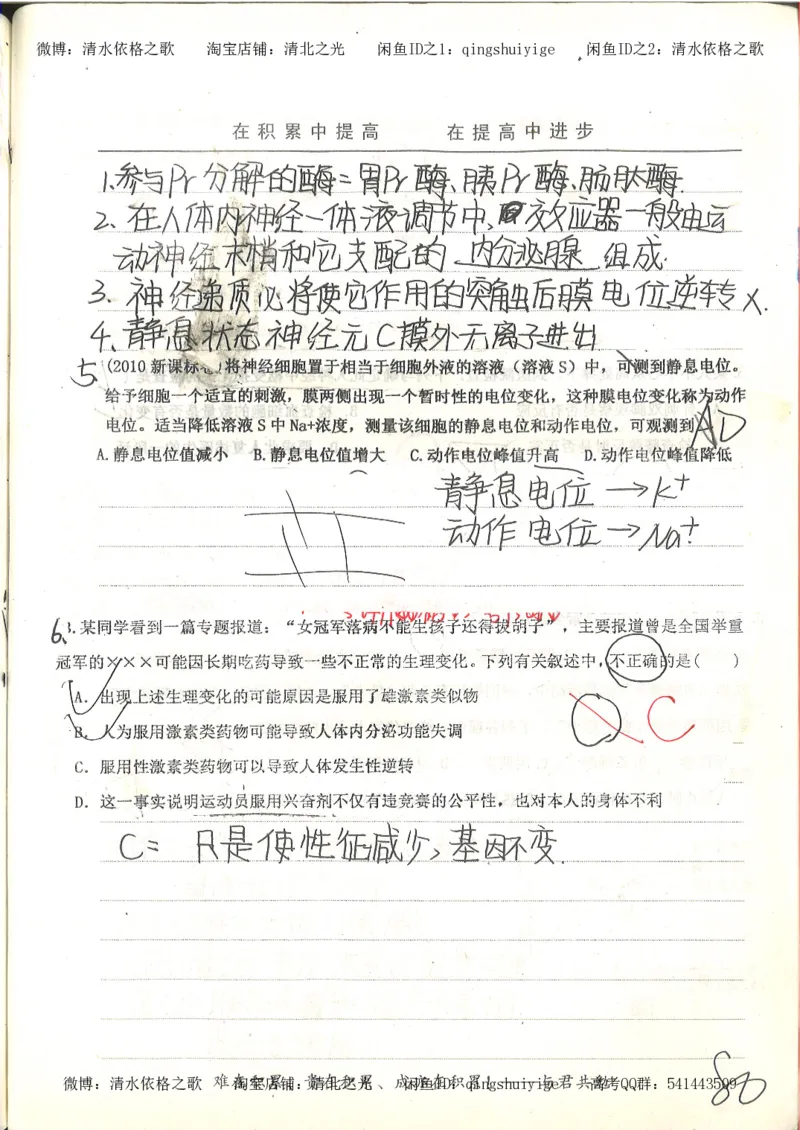 微博：清水依格之歌 淘宝店铺：清北之光 闲鱼ID之1：qingshuiyige 闲鱼ID之2：清水依格之歌
在积累中提高 在提高中进步
1.参与Pr分解的酶=胃Pr酶、胰Pr酶、肠肽酶.
2、在人体内神经—体液调节中,效应器一般由运
动神经末梢和它支配的 内分泌腺 组成.
3、神经递质必将使它作用的突触后膜电位逆转 X.
4、静息状态神经元C膜外无离子进出
5、(2010 新课标 将神经细胞置于相当于细胞外液的溶液（溶液 S）中，可测到静息电位。
给予细胞一个适宜的刺激，膜两侧出现一个暂时性的电位变化，这种膜电位变化称为动作
电位。适当降低溶液 S 中 Na+浓度，测量该细胞的静息电位和动作电位，可观测到 AD
A.静息电位值减小 B.静息电位值增大 C.动作电位峰值升高 D.动作电位峰值降低
静息电位→K+
动作电位→Na+
6、3.某同学看到一篇专题报道：“女冠军落病不能生孩子还得拔胡子”，主要报道曾是全国举重
冠军的×××可能因长期吃药导致一些不正常的生理变化。下列有关叙述中，不正确的是( )
A．出现上述生理变化的可能原因是服用了雄激素类似物
B．人为服用激素类药物可能导致人体内分泌功能失调
C
C．服用性激素类药物可以导致人体发生性逆转
D．这一事实说明运动员服用兴奋剂不仅有违竞赛的公平性，也对本人的身体不利
C= 只是使性征减少,基因不变.
微博：清水依格之歌 淘宝店铺：清北之光 闲鱼ID：qingshuiyige 高考QQ群：541443509
80